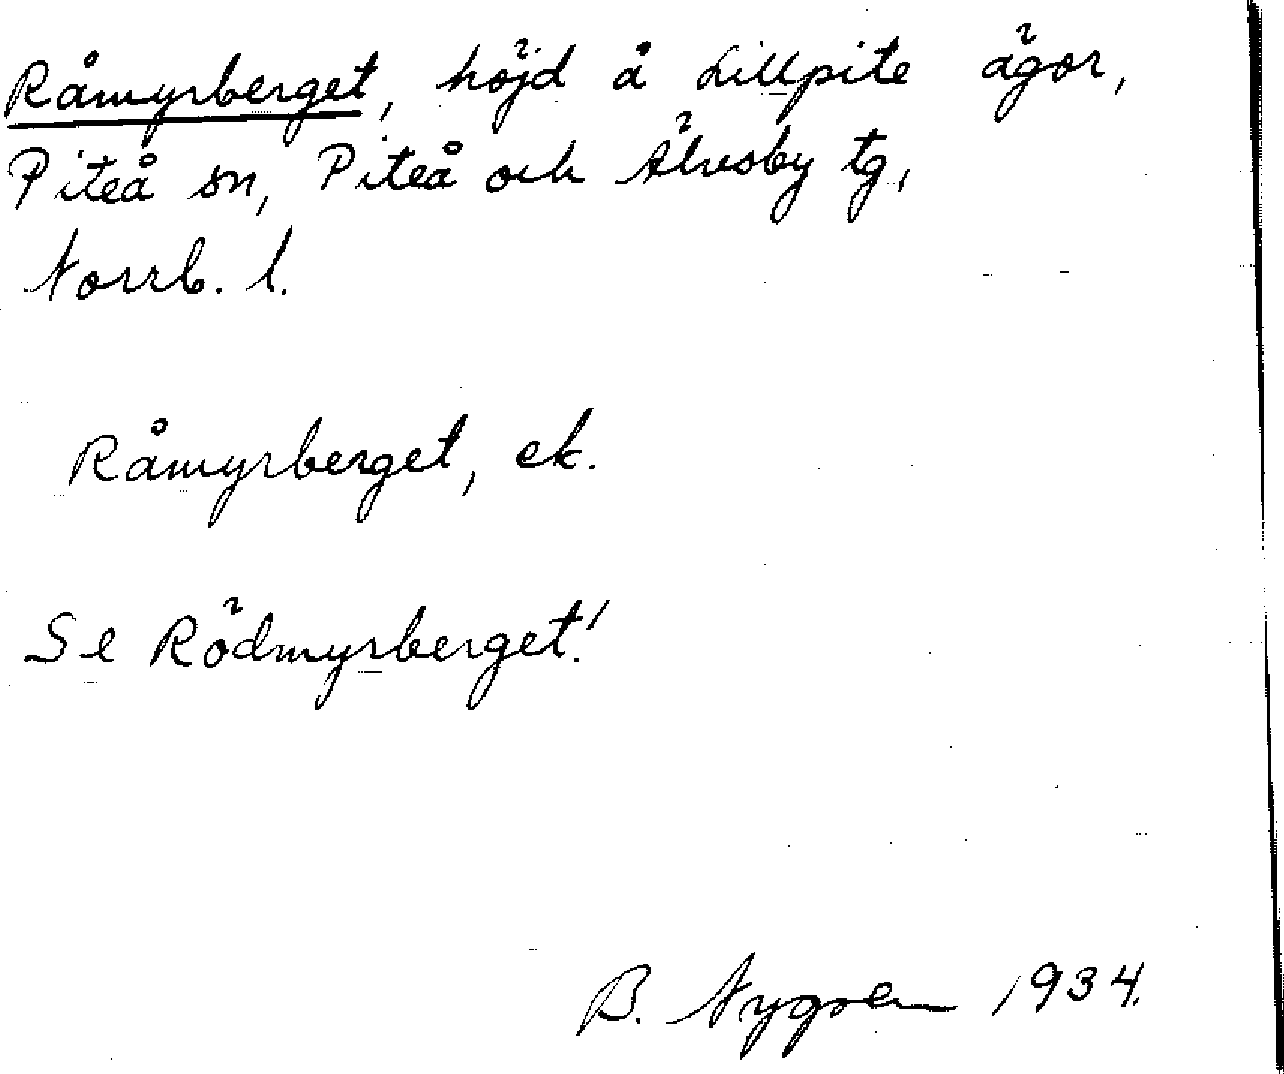 Råmyrberget, höjd å Lillpite ägor,
Piteå sn, Piteå och Älvsby tg,
Norrb. l.
Råmyrberget, ek.
Se Rödmyrberget!
B. Nygren 1934.